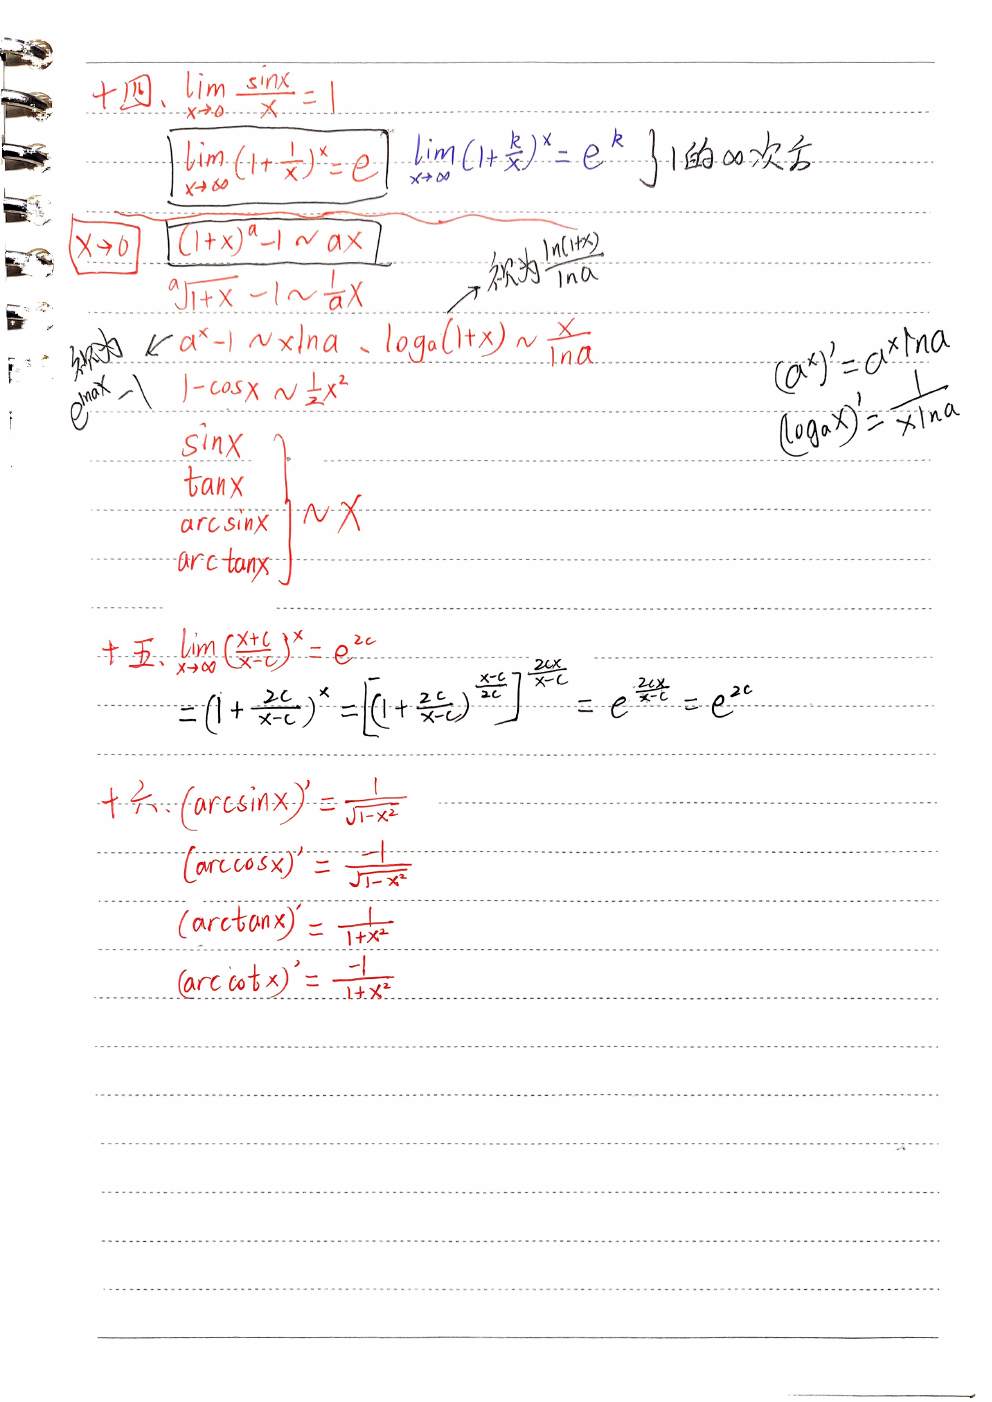 十四、lim x→0 sinx/x = 1
lim x→∞ (1+1/x)^x = e lim x→∞ (1+k/x)^x = e^k } 1的∞次方
x→0 (1+x)^a -1 ~ ax
视为 ln(1+x)/lna
ᵃ√(1+x) -1 ~ 1/a x
视为 e^(lnax) -1 ↙ a^x -1 ~ xlna、loga(1+x) ~ x/lna
(a^x)' = a^x lna
1-cosx ~ 1/2 x²
(logax)' = 1/(xlna)
sinx
tanx
arcsinx
arctanx
} ~ x
十五、lim x→∞ ((x+c)/(x-c))^x = e^(2c)
= (1+2c/(x-c))^x = [(1+2c/(x-c))^((x-c)/2c)]^(2cx/(x-c)) = e^(2cx/(x-c)) = e^(2c)
十六、(arcsinx)' = 1/√(1-x²)
(arccosx)' = -1/√(1-x²)
(arctanx)' = 1/(1+x²)
(arccotx)' = -1/(1+x²)